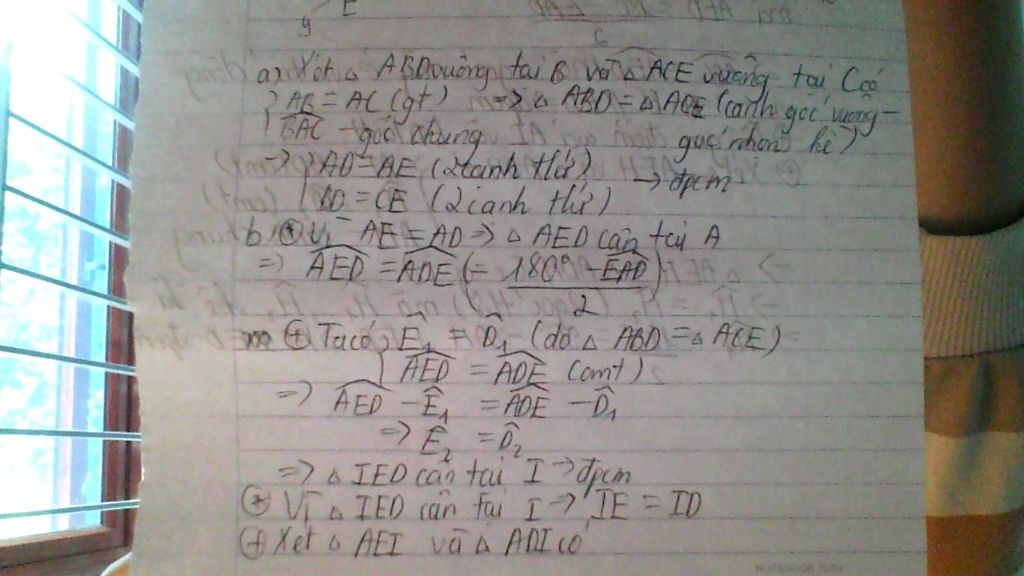 y E
a) Xét △ ABD vuông tại B và △ ACE vuông tại C có
{ AB = AC (gt) => △ ABD = △ ACE (cạnh góc vuông -
{ BAC - góc chung góc nhọn kề)
=> { AD = AE (2 cạnh tứ) -> đpcm
BD = CE (2 cạnh tứ)
b) ⊕ Vì AE = AD => △ AED cân tại A
=> AED = ADE (= 180° - EAD / 2)
⊕ Ta có: Ê1 = D̂1 (do △ ABD = △ ACE)
AED = ADE (cmt)
=> AED - Ê1 = ADE - D̂1
=> Ê2 = D̂2
=> △ IED cân tại I -> đpcm
⊕ Vì △ IED cân tại I -> IE = ID
⊕ Xét △ AEI và △ ADI có
NOTEBOOK